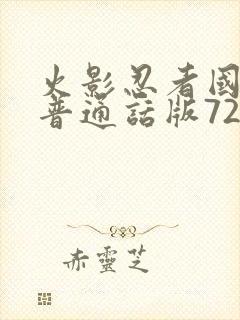 火影忍者國
普通話版72
赤靈芝